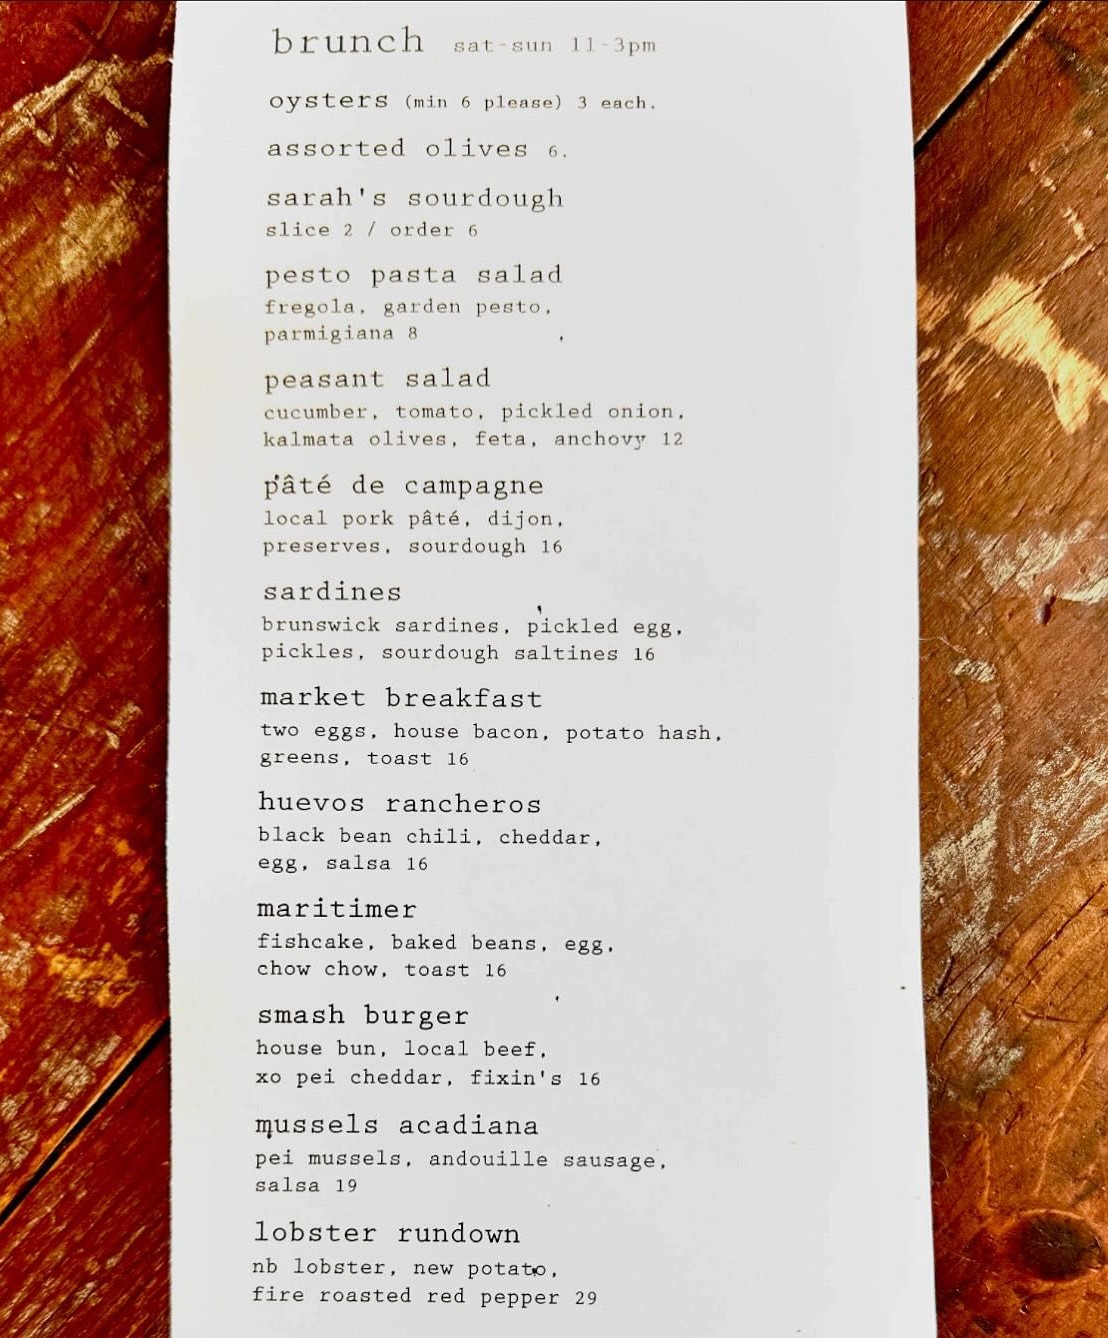 brunch sat-sun 11-3pm
oysters (min 6 please) 3 each.
assorted olives 6.
sarah's sourdough
slice 2 / order 6
pesto pasta salad
fregola, garden pesto,
parmigiana 8
peasant salad
cucumber, tomato, pickled onion,
kalmata olives, feta, anchovy 12
pâté de campagne
local pork pâté, dijon,
preserves, sourdough 16
sardines
brunswick sardines, pickled egg,
pickles, sourdough saltines 16
market breakfast
two eggs, house bacon, potato hash,
greens, toast 16
huevos rancheros
black bean chili, cheddar,
egg, salsa 16
maritimer
fishcake, baked beans, egg,
chow chow, toast 16
smash burger
house bun, local beef,
xo pei cheddar, fixin's 16
mussels acadiana
pei mussels, andouille sausage,
salsa 19
lobster rundown
nb lobster, new potato,
fire roasted red pepper 29